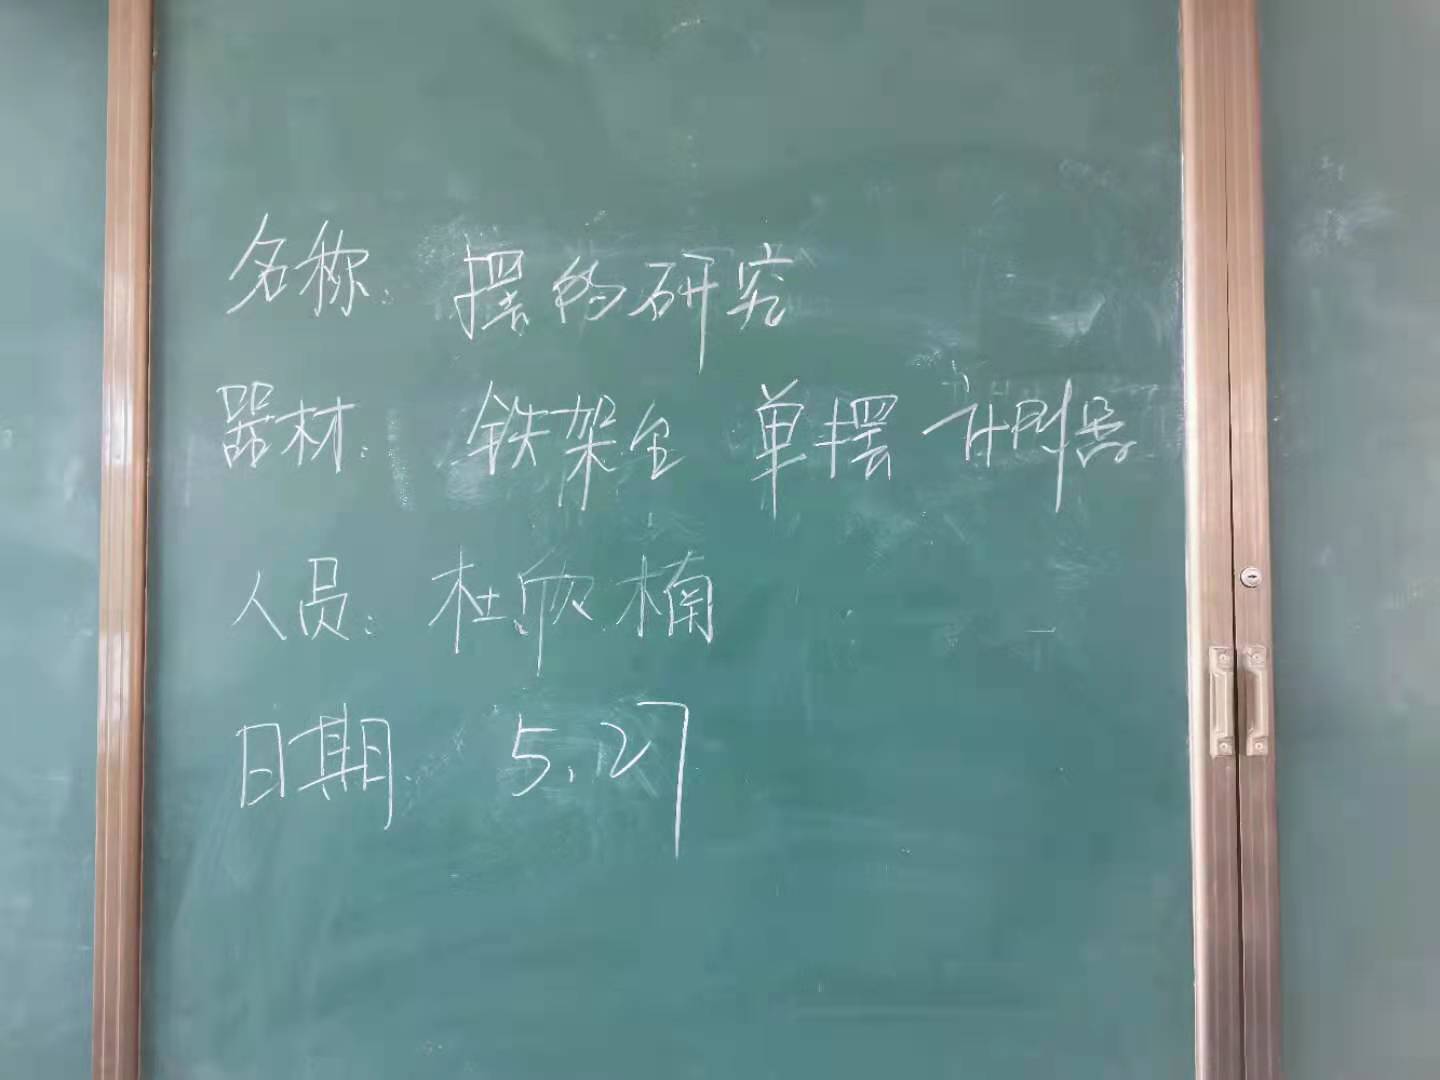 名称:摆的研究
器材:铁架台 单摆 计时器
人员:杜欣楠
日期 5.27